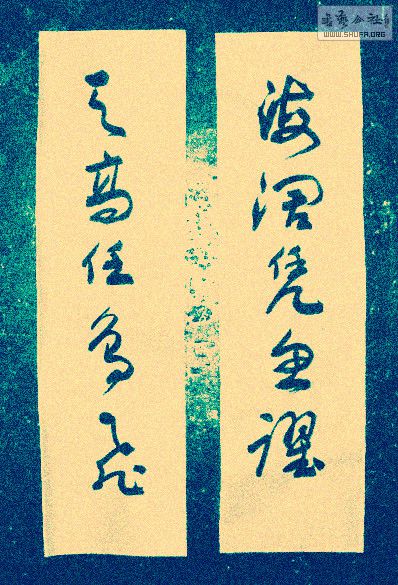 海阔凭鱼跃
天高任鸟飞
WWW.SHUFA.ORG